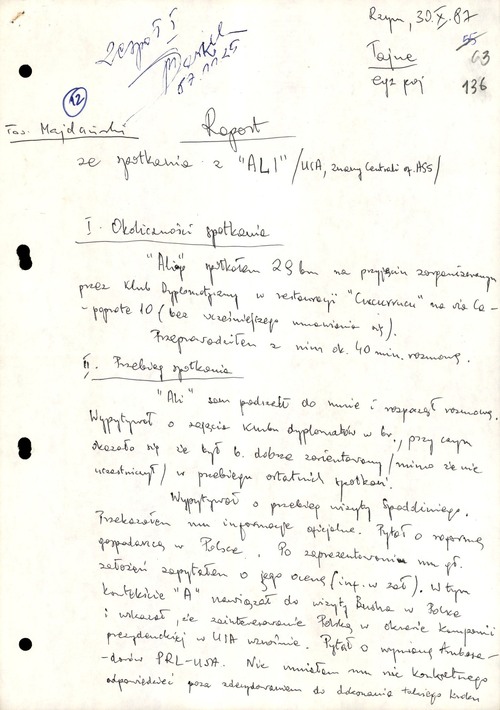 Rzym, 30.X.87
Zespół I
87.11.25
Tajne
55
63
egz poj
136
42
Tow. Majdański
Raport
ze spotkania z "ALI" /USA, znany Centrali
I. Okoliczności spotkania
spotkałem 29 bm na przyjęciu zorganizowanym
przez Klub Dyplomatyczny w restauracji na via
10 (bez wcześniejszego umawiania się).
Przeprowadziłem z nim ok. 40 min. rozmowę.
II. Przebieg spotkania
"Ali" sam podszedł do mnie i rozpoczął rozmowę.
Wypytywał o zajęcia Klubu dyplomatów w br., przy czym
okazało się że był b. dobrze zorientowany /mimo że nie
uczestniczył/ w przebiegu ostatnich spotkań.
Wypytywał o przebieg wizyty Spadoliniego.
Przekazałem mu informacje oficjalne. Pytał o reformę
gospodarczą w Polsce. Po zaprezentowaniu mu gł.
założeń zapytałem o jego ocenę (inf. w zał). W tym
kontekście "A" nawiązał do wizyty Busha w Polsce
i wskazał, że zainteresowanie Polską w okresie kampanii
prezydenckiej w USA wzrośnie. Pytał o wymianę Ambasa-
dorów PRL-USA. Nie umiałem mu nic konkretnego
odpowiedzieć poza zdecydowaniem do dokonania takiego kroku